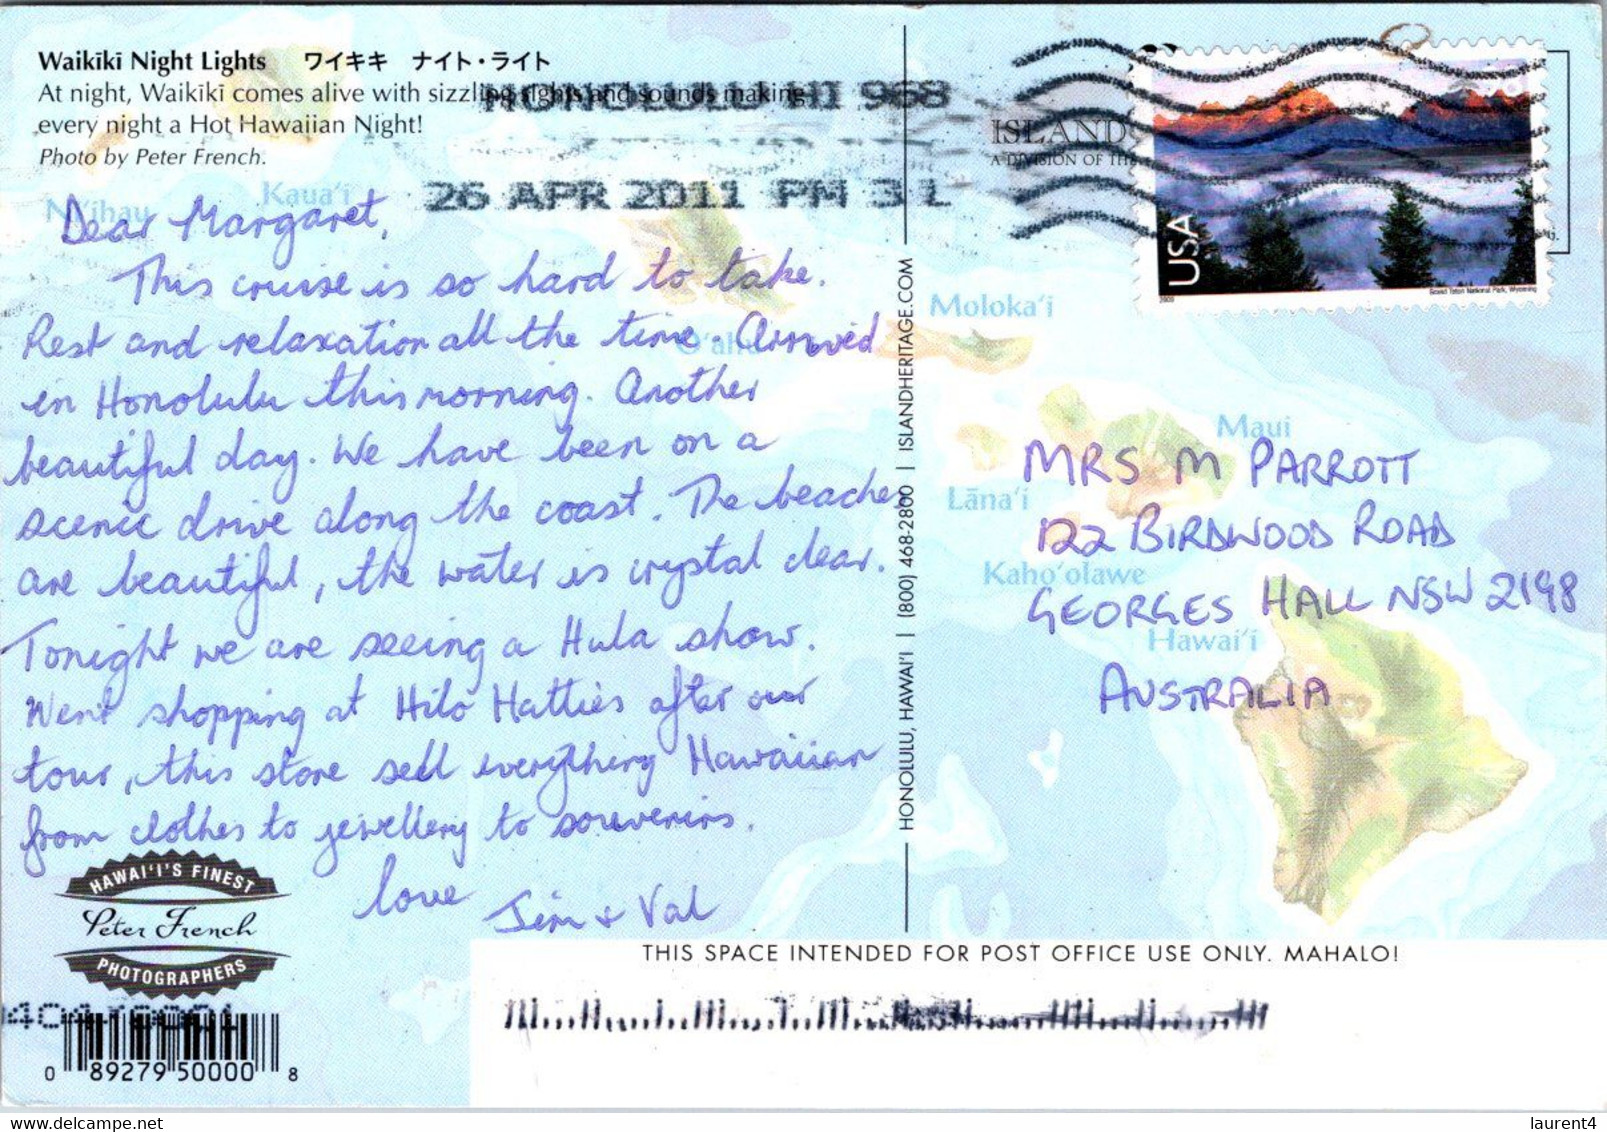 Waikīkī Night Lights ワイキキ ナイト・ライト
At night, Waikīkī comes alive with sizzling sights and sounds making
every night a Hot Hawaiian Night!
Photo by Peter French.
HI 968
26 APR 2011 PM 3 L
Dear Margaret,
This cruise is so hard to take.
Rest and relaxation all the time. Arrived
in Honolulu this morning. Another
beautiful day. We have been on a
scenic drive along the coast. The beaches
are beautiful, the water is crystal clear.
Tonight we are seeing a Hula show.
Went shopping at Hilo Hatties after our
tour, this store sell everything Hawaiian
from clothes to jewellery to souvenirs.
love Jim + Val
HAWAI'I'S FINEST
Peter French
PHOTOGRAPHERS
0 89279 50000 8
HONOLULU, HAWAI'I | (800) 468-2800 | ISLANDHERITAGE.COM
ISLAND
A DIVISION OF THE
USA
2009
Grand Teton National Park, Wyoming
Ni'ihau
Kaua'i
O'ahu
Moloka'i
Maui
Lāna'i
Kaho'olawe
Hawai'i
MRS M PARROTT
122 BIRDWOOD ROAD
GEORGES HALL NSW 2198
AUSTRALIA
THIS SPACE INTENDED FOR POST OFFICE USE ONLY. MAHALO!
laurent4